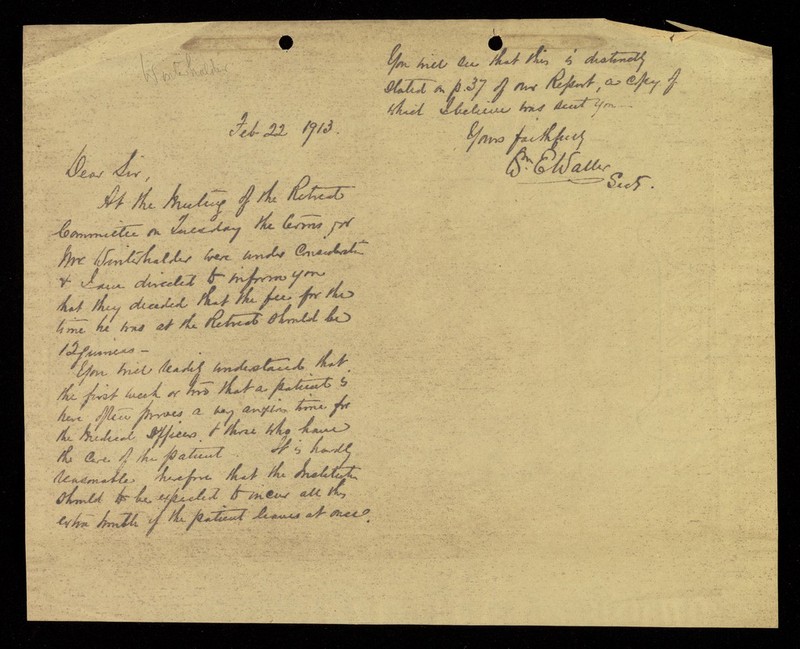 Feb 22 1913.
Dear Sir,
At the Meeting of the Retreat
Committee on Tuesday the terms for
Mr Winterhalder were under Consideration
& I am directed to inform you
that they decided that the fee for the
time he was at the Retreat should be
12 guineas -
You will readily understand that
the first week or two that a patient is
here often proves a very anxious time for
the Medical Officers & those who have
the care of the patient. It is hardly
reasonable therefore that the Institution
should be expected to incur all this
extra trouble if the patient leaves at once.
You will see that this is distinctly
stated on p. 37 of our Report, a copy of
which I believe was sent you -
Yours faithfully
Wm. E Waller
Secty.